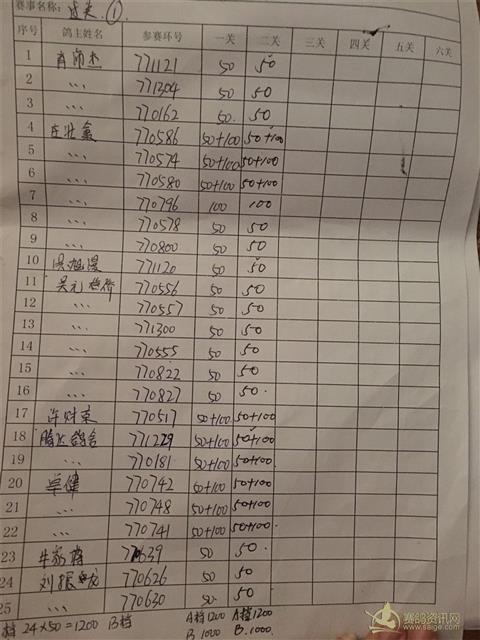 赛事名称: 过关 ①
序号 鸽主姓名 参赛环号 一关 二关 三关 四关 五关 六关
1 771121 50 50
2 〃 771304 50 50
3 〃 770162 50 50
4 庄壮 770586 50+100 50+100
5 〃 770574 50+100 50+100
6 〃 770580 50+100 50+100
7 〃 770796 100 100
8 〃 770578 50 50
9 〃 770800 50 50
10 771120 50 50
11 吴元 770556 50 50
12 〃 770557 50 50
13 〃 771300 50 50
14 〃 770555 50 50
15 〃 770822 50 50
16 〃 770827 50 50
17 许财 770517 50+100 50+100
18 腾达鸽舍 771229 50+100 50+100
19 〃 770181 50+100 50+100
20 卓健 770742 50+100 50+100
21 〃 770748 50+100 50+100
22 〃 770741 50+100 50+100
23 牛家 50 50
24 刘振 770626 50 50
25 〃 770630 50 50
档 24×50=1200 B档 A档1200 A档1200
B 1000 B.1000.
赛鸽资讯网
www.saige.com